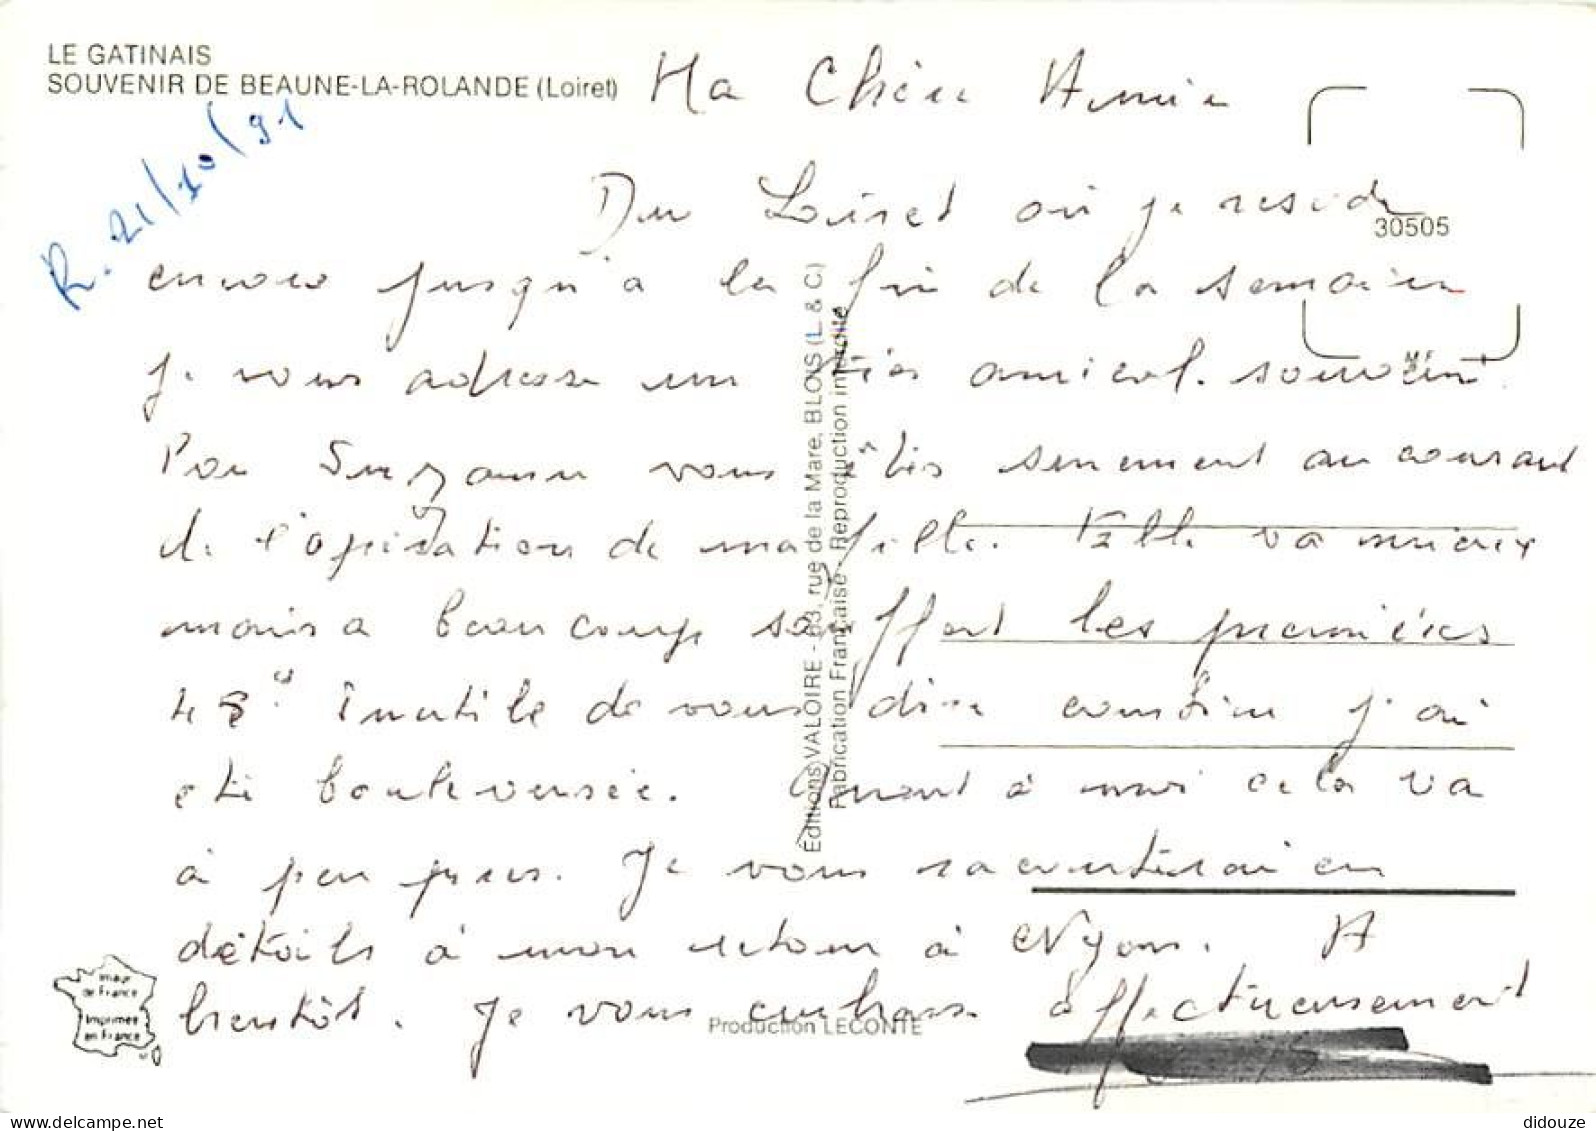 LE GATINAIS
SOUVENIR DE BEAUNE-LA-ROLANDE (Loiret)
R. 21/10/91
Ma Chère Amie
Du Loiret où je réside
30505
encore jusqu'à la fin de la semaine
je vous adresse un très amical souvenir.
Par Suzanne vous êtes surement au courant
de l'opération de ma fille. Elle va mieux
mais a beaucoup souffert les premières
48 h. Inutile de vous dire combien j'ai
été bouleversée. Quant à moi cela va
à peu près. Je vous raconterai en
détails à mon retour à Nyons. A
bientôt. Je vous embrasse affectueusement
Éditions VALOIRE - 63, rue de la Mare, BLOIS (L. & C.)
Fabrication Française - Reproduction interdite
Imprimée
en France
Production LECONTE
didouze